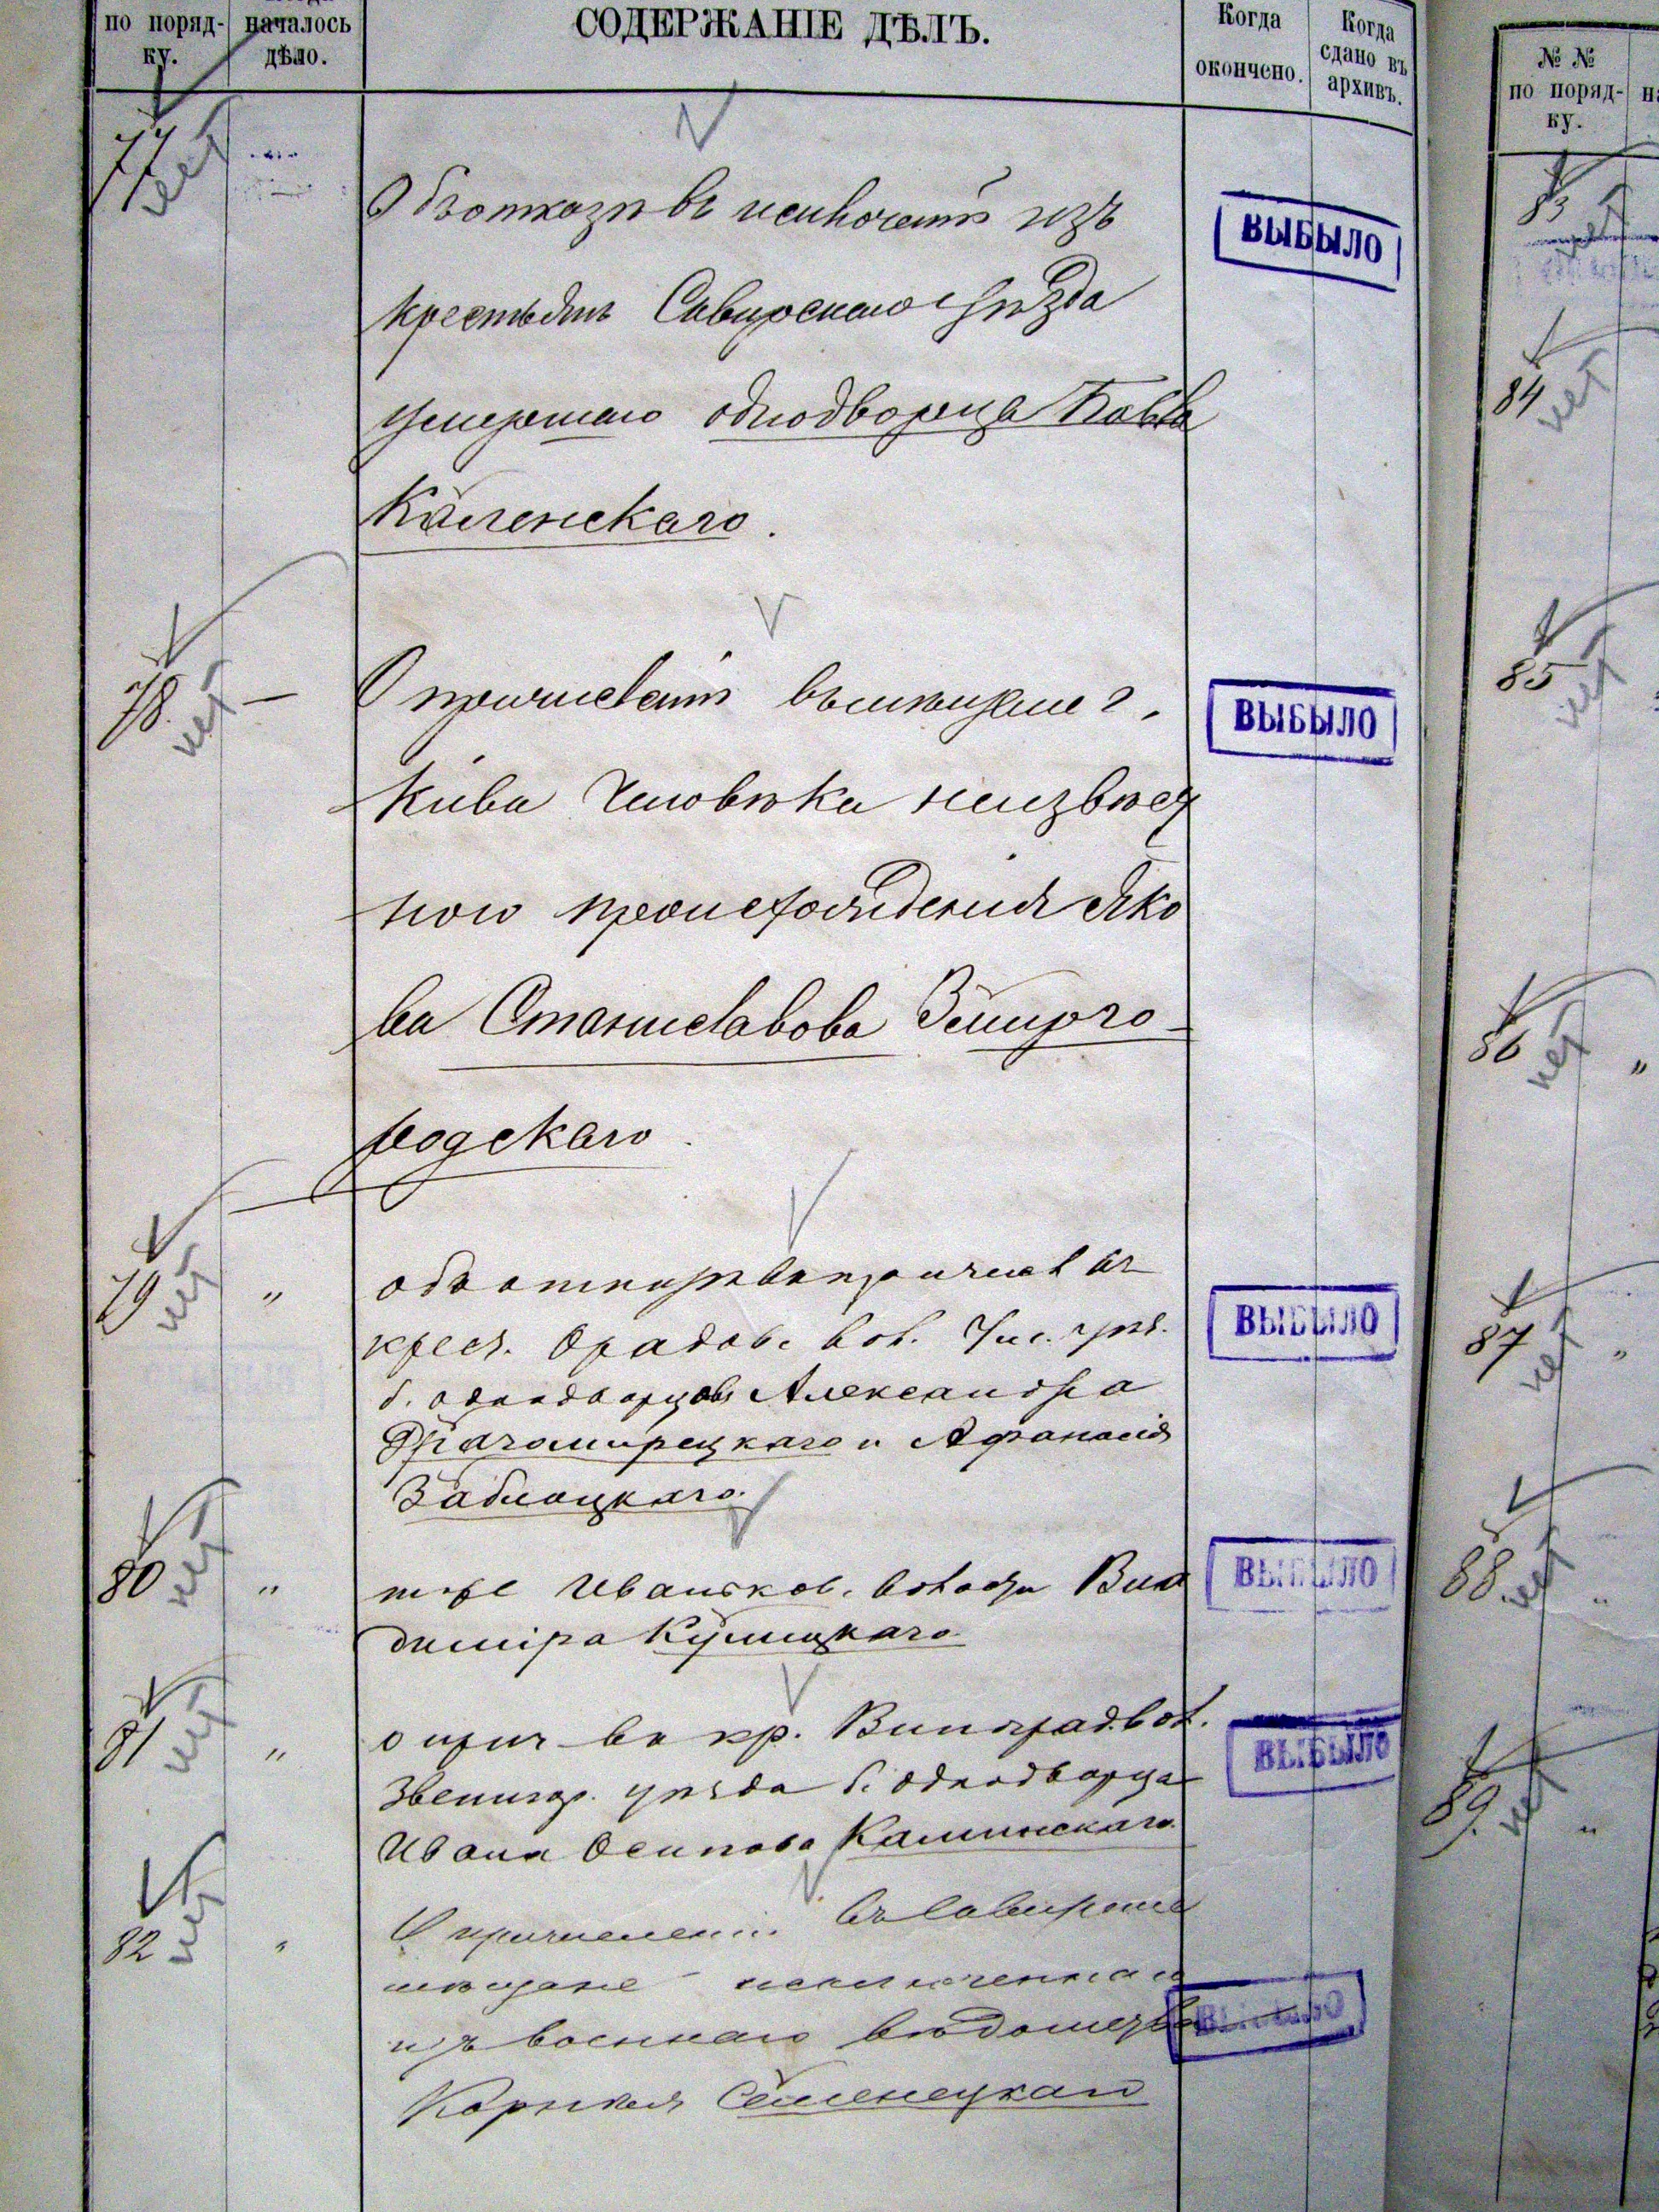 по поряд-
ку.
началось
дѣло.
СОДЕРЖАНІЕ ДѢЛЪ.
Когда
окончено.
Когда
сдано въ
архивъ.
77
нет
Объ отказѣ въ изъ
крестьянъ Сквирскаго уѣзда
умершаго однодворца Павла
Каленскаго.
ВЫБЫЛО
78.
нет
—
О причислении въ мѣщане г.
Кіева человѣка неизвѣст
наго происхожденія Яко
ва Станиславова Вышого-
родскаго.
ВЫБЫЛО
79
нет
"
объ отказѣ въ причисл въ
крест. вол. уѣз.
б. однодворцовъ Александра
и Афанасія
Заблоцкаго.
ВЫБЫЛО
80
нет
"
тоже Иваньков. волости Вла
диміра
ВЫБЫЛО
81
нет
"
о прич въ кр. Виноград. вол.
Звенигор. уѣзда б. однодворца
Ивана Осипова Калинскаго.
ВЫБЫЛО
82
нет
"
О причислении въ Сквирские
мѣщане исключеннаго
изъ военнаго вѣдомства
Корнилія Семенецкаго
ВЫБЫЛО
№ №
по поряд-
ку.
83
нет
84
нет
85
нет
86
нет
"
87
нет
"
88.
нет
"
89.
нет
"